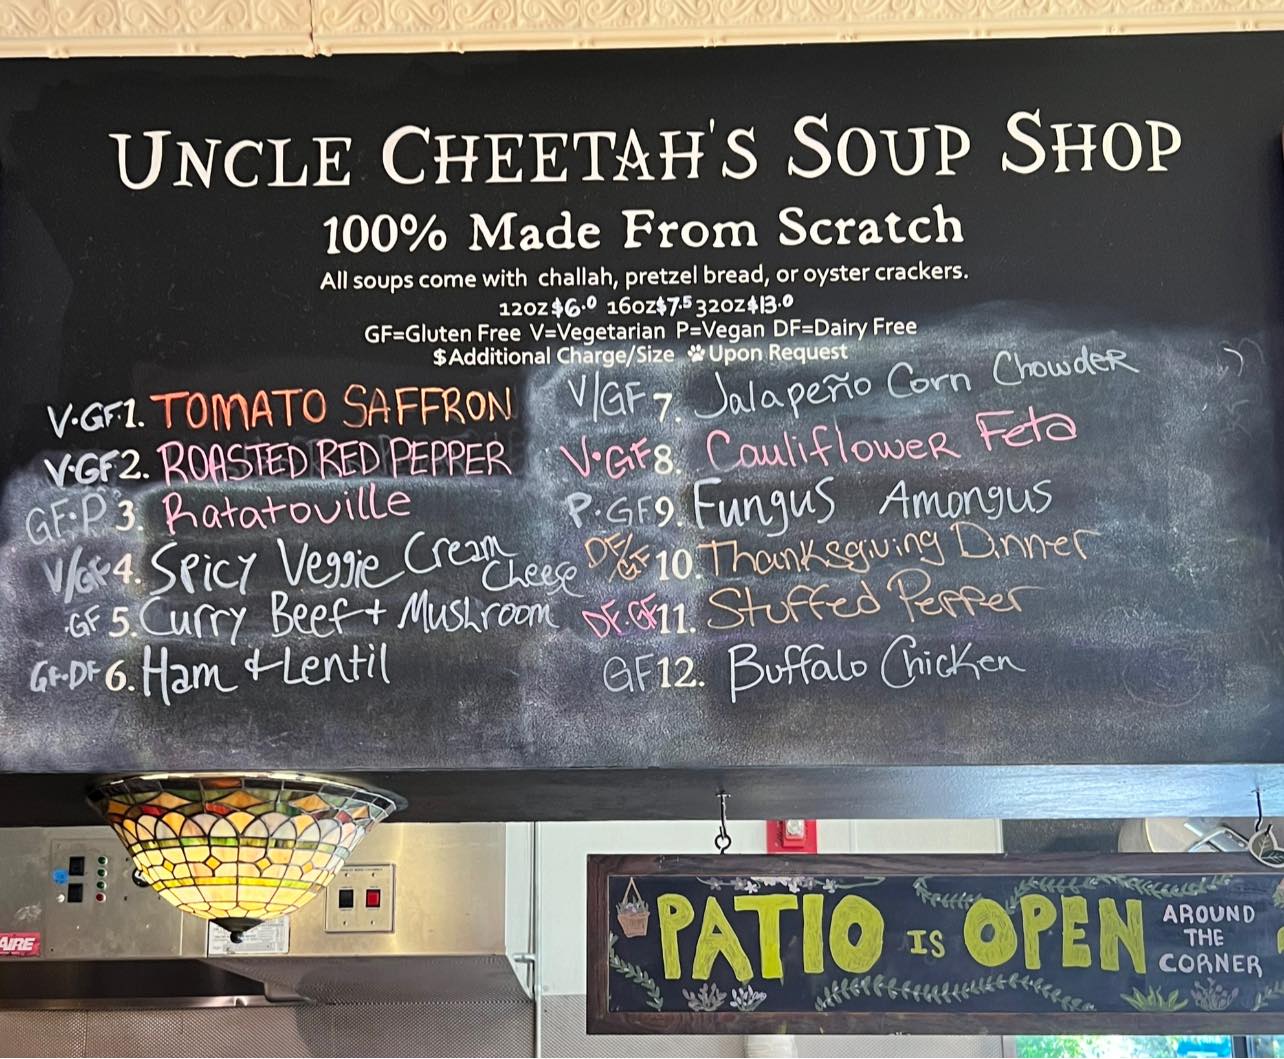 UNCLE CHEETAH'S SOUP SHOP
100% Made From Scratch
All soups come with challah, pretzel bread, or oyster crackers.
12OZ $6.0 16OZ $7.5 32OZ $13.0
GF=Gluten Free V=Vegetarian P=Vegan DF=Dairy Free
$Additional Charge/Size 🐾Upon Request
V·GF 1. TOMATO SAFFRON
V·GF 2. ROASTED RED PEPPER
GF·P 3. Ratatouille
V/GF 4. Spicy Veggie Cream
Cheese
GF 5. Curry Beef + Mushroom
GF·DF 6. Ham + Lentil
V/GF 7. Jalapeño Corn Chowder
V·GF 8. Cauliflower Feta
P·GF 9. Fungus Amongus
DF/GF 10. Thanksgiving Dinner
DF·GF 11. Stuffed Pepper
GF 12. Buffalo Chicken
PATIO IS OPEN
AROUND
THE
CORNER